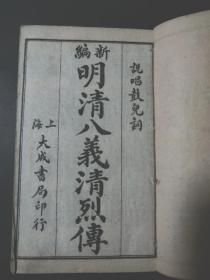 說唱鼓兒詞
新編
明清八義清烈傳
上海
大成書局印行